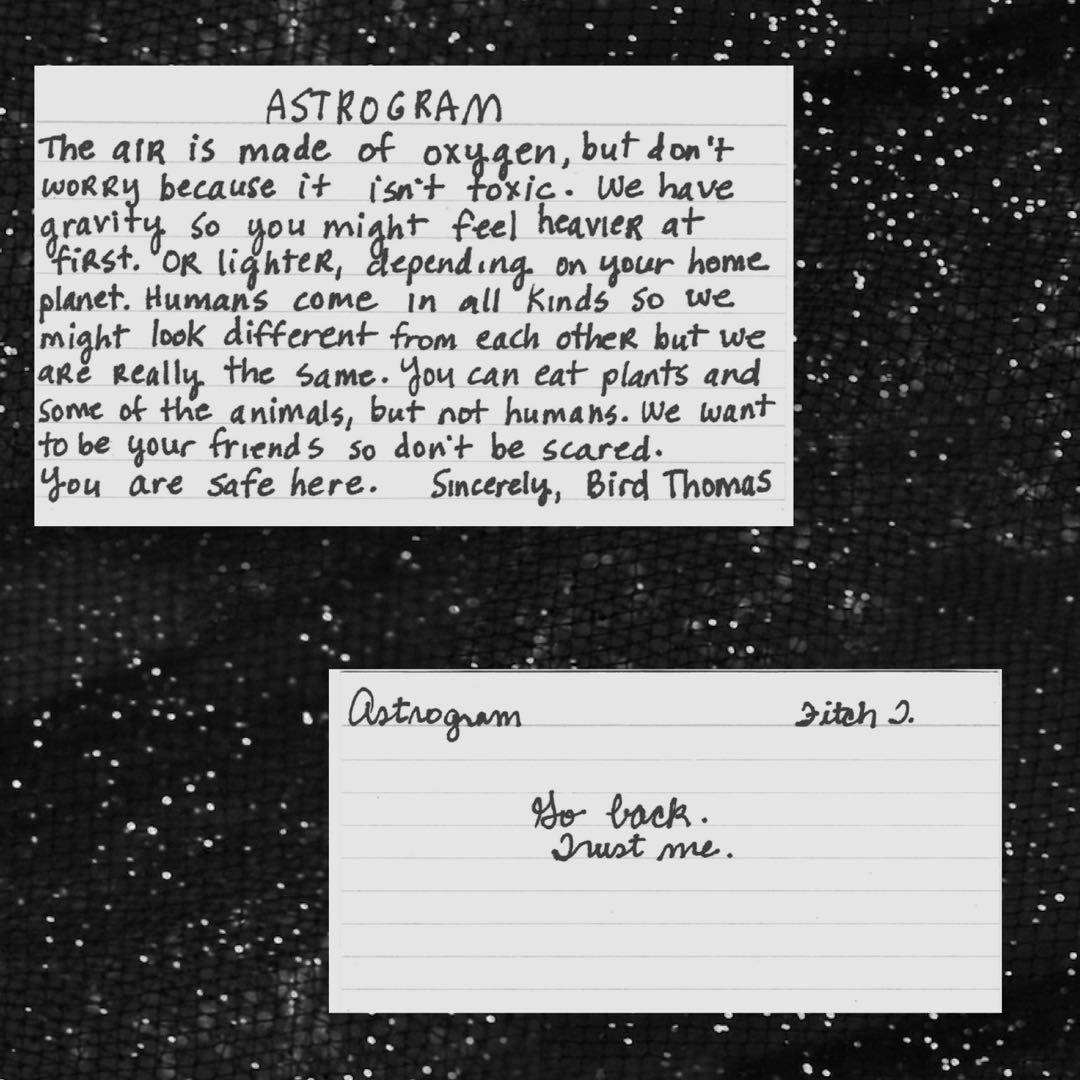 ASTROGRAM
The air is made of oxygen, but don't
worry because it isn't toxic. We have
gravity so you might feel heavier at
first. Or lighter, depending on your home
planet. Humans come in all kinds so we
might look different from each other but we
are really the same. You can eat plants and
some of the animals, but not humans. We want
to be your friends so don't be scared.
You are safe here. Sincerely, Bird Thomas
Astrogram Fitch T.
Go back.
Trust me.